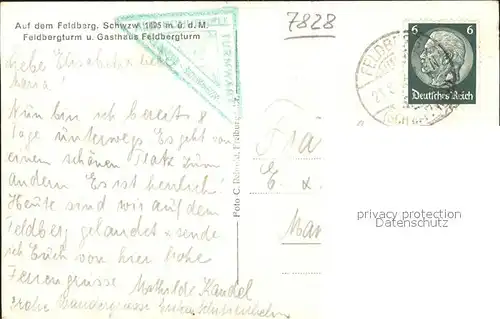 Auf dem Feldberg. Schwzw. 1495 m ü. d. M.
Feldbergturm u. Gasthaus Feldbergturm
7828
6 6
Deutsches Reich
FELDBERG
TURMWART
Liebe Elisabeth u. liebe
Maria!
Nun bin ich bereits 8
Tage unterwegs Es geht von
einem schönen Platz zum
andern Es ist herrlich!
Heute sind wir auf dem
Feldberg gelandet & sende
ich Euch von hier frohe
Feriengrüsse Mathilde Kandel
Frohe Wandergrüsse
Foto C. Freiburg
Frä
E. &
Man
privacy protection
Datenschutz